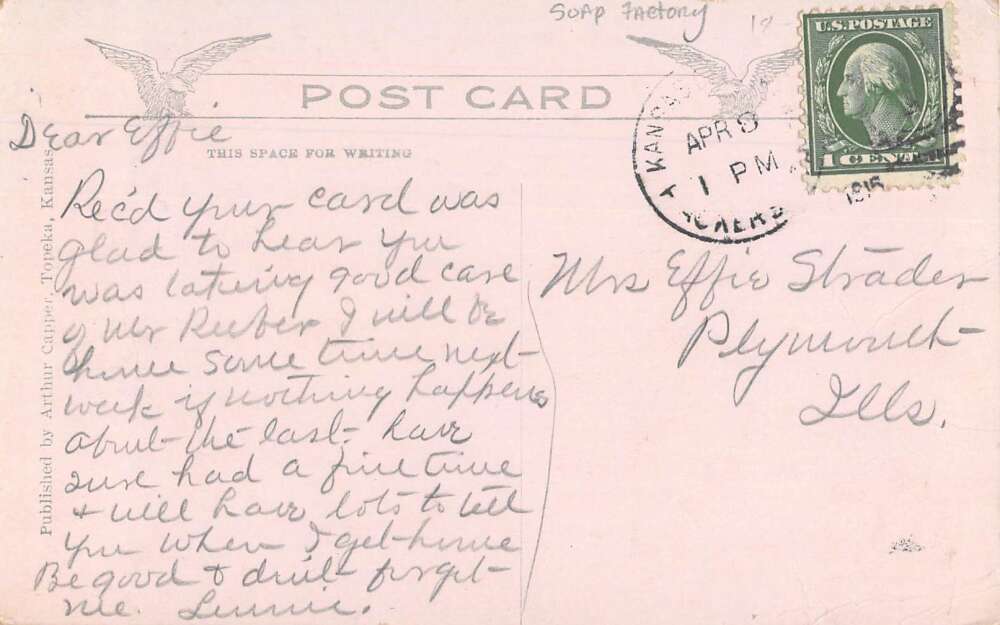 SOAP FACTORY
U.S. POSTAGE
1 CENT
POST CARD
KANSAS
APR 8
1 PM
1916
THIS SPACE FOR WRITING
Published by Arthur Capper, Topeka, Kansas
Dear Effie
Rec'd your card was
glad to hear you
was taking good care
of Mr Reuber I will be
home some time next
week if nothing happens
about the last. have
sure had a fine time
& will have lots to tell
you when I get home
Be good & don't forget
me.
Mrs Effie Strader
Plymouth
Ills.